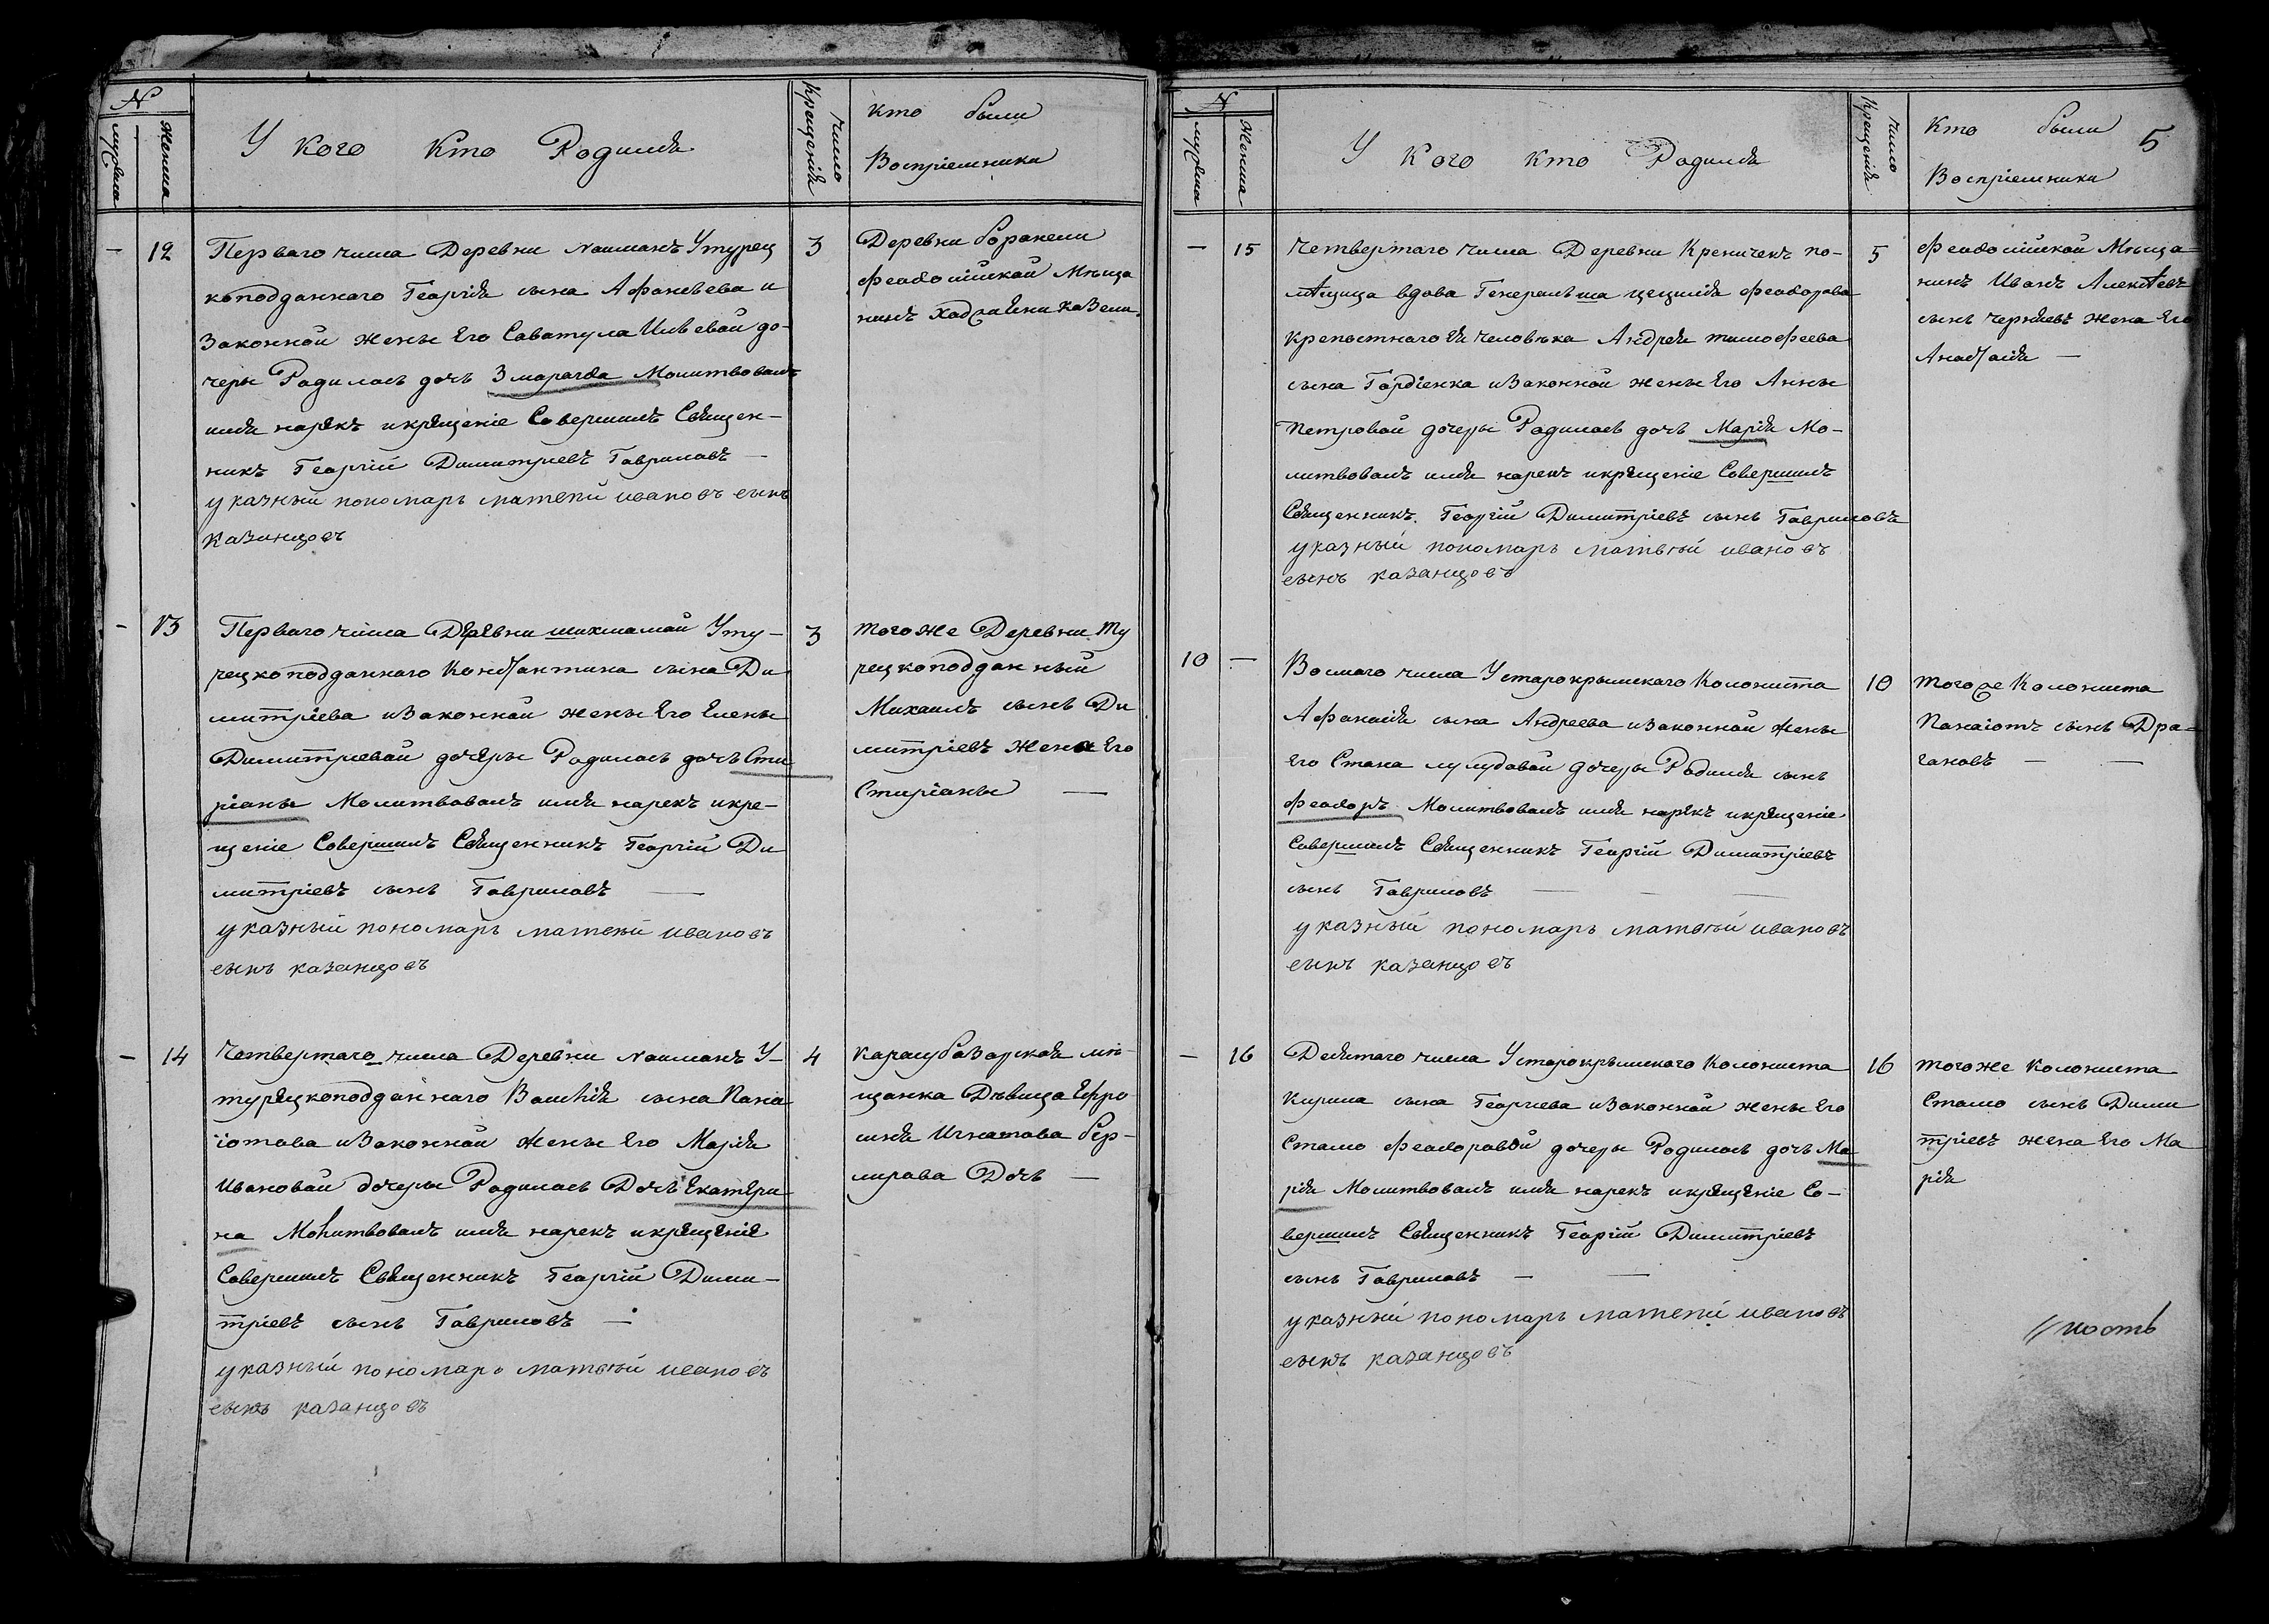 N
мужеска
женска
У кого Кто Родился
число Крещенія
кто были
Воспріемники
—
12
Перваго числа Деревни Найманъ Утурец
коподданнаго Георгія сына Афанасьева и
Законной жены Его Саватула Ильевой до-
черы Родилась дочь Змарагда Молитвовалъ
имя нарѣкъ икрѣщеніе Совершилъ Священ-
никъ Георгій Димитріевъ Гавриловъ —
указный пономарь матвѣй ивановъ сынъ
казанцовъ
3
Деревни боракели
Феодосійской Мѣща
нинъ
—
13
Перваго числа Деревни шихмамай Уту-
рецкоподданнаго Константина сына Ди
митріева изаконной жены Его Елены
Димитріевой дочеры Родилась дочь Сти
ріаны Молитвовалъ имя нарекъ икре-
щеніе Совершилъ Священникъ Георгій Ди
митріевъ сынъ Гавриловъ —
указный пономарь матвѣй ивановъ
сынъ казанцовъ
3
тогоже Деревни Ту
рецкоподданный
Михаилъ сынъ Ди
митріевъ жена Его
Стиріаны —
—
14
Четвертаго числа Деревни Найманъ У-
турецкоподданнаго Василія сына Пана
іотова изаконной жены Его Марія
Ивановой дочеры Родилась Дочь Екатери
на Молитвовалъ имя нарекъ икрещеніе
Совершилъ Священникъ Георгій Дими-
тріевъ сынъ Гавриловъ —
указный пономарь матвѣй ивановъ
сынъ казанцовъ
4
Карасубазарской мѣ-
щанка Дѣвица Ефро
синя Игнатова
Дочь —
N
мужеска
Женска
У кого кто Родился
число Крещенія
Кто были
Воспріемники
5
—
15
Четвертаго числа Деревни Креничекъ по-
мѣщица вдова Генеральша цецилія Феодорова
Крепостнаго Ея человѣка Андрея тимофеева
сына Гордіенка изаконной жены Его Анны
Петровой дочеры Родилась дочь Марія Мо-
литвовалъ имя нарекъ икрѣщеніе Совершилъ
Священникъ Георгій Димитріевъ сынъ Гавриловъ
указный пономарь матвѣй ивановъ
сынъ казанцовъ
5
Феодосійской Мѣща-
нинъ Иванъ Алексѣевъ
сынъ жена Его
Анастасія —
10
—
Восмаго числа Устарокрымскаго Колониста
Афанасія сына Андреева изаконной жены
Его Стана дочеры Родился сынъ
Феодоръ Молитвовалъ имя нарѣкъ икрѣщеніе
Совершилъ Священникъ Георгій Димитріевъ
сынъ Гавриловъ — — —
указный пономарь матвѣй ивановъ
сынъ казанцовъ
10
тогоже Колониста
Панаіотъ сынъ Дра-
гановъ — —
—
16
Девятаго числа Устарокрымскаго Колониста
Кирила сына Георгіева изаконной жены Его
Стамо Феодоровой дочеры Родилась дочь Ма
рія Молитвовалъ имя нарекъ икрѣщѣніе Со-
вершилъ Священникъ Георгій Димитріевъ
сынъ Гавриловъ — —
указный пономарь матвѣй ивановъ
сынъ казанцовъ
16
тогоже Колониста
Стамо сынъ Дими
тріевъ жена Его Ма
рія